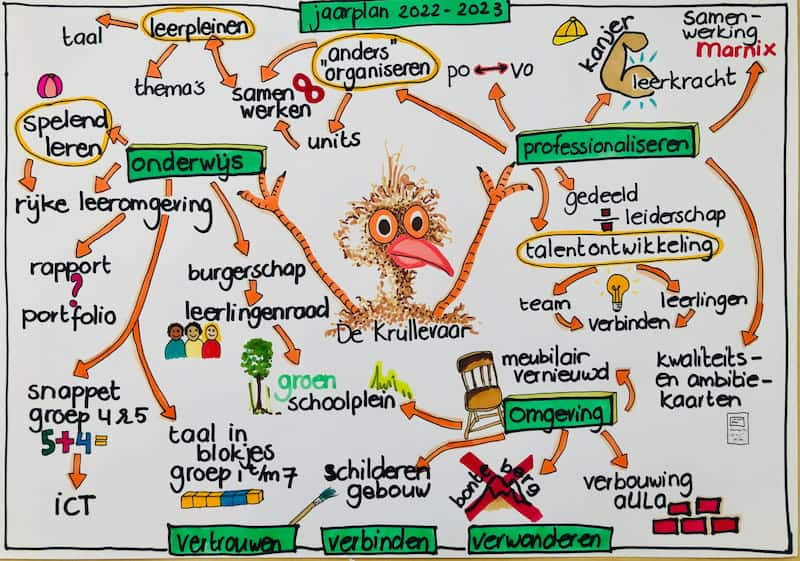 jaarplan 2022-2023
taal
leerpleinen
thema's
samen
werken
"anders"
organiseren
units
po ↔ vo
kanjer
leerkracht
samen-
werking
Marnix
spelend
leren
onderwijs
professionaliseren
rijke leeromgeving
gedeeld
leiderschap
talentontwikkeling
team
leerlingen
verbinden
rapport
?
portfolio
burgerschap
leerlingenraad
De Krullevaar
groen
schoolplein
meubilair
vernieuwd
omgeving
kwaliteits-
en ambitie-
kaarten
snappet
groep 4 & 5
5+4=
ICT
taal in
blokjes
groep 1 t/m 7
schilderen
gebouw
bonte berg
verbouwing
aula
vertrouwen
verbinden
verwonderen